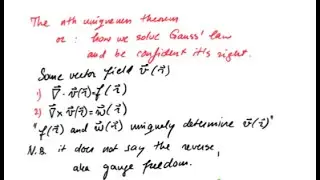 The nth uniqueness theorem
or : how we solve Gauss' law
and be confident it's right.
Some vector field v⃗(r⃗)
1) ∇⃗ · v⃗(r⃗) = f(r⃗)
2) ∇⃗ × v⃗(r⃗) = w⃗(r⃗)
"f(r⃗) and w⃗(r⃗) uniquely determine v⃗(r⃗)"
N.B. it does not say the reverse,
aka gauge freedom.